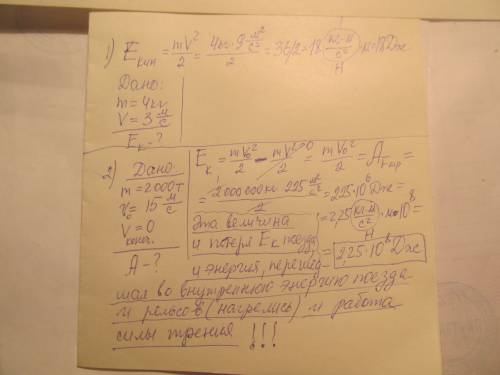 1) Eкин = mV²/2 = 4кг·9 м²/с² / 2 = 36/2 = 18 кг·м/с² ·м = 18 Дж
Н
Дано:
m = 4кг
V = 3 м/с
Eк - ?
2) Дано:
m = 2000т
V₀ = 15 м/с
V = 0
конеч.
A - ?
Eк = mV₀²/2 - mV²/2 →0 = mV₀²/2 = Aтр =
= 2000000кг 225 м²/с² / 2 = 225·10⁶ Дж =
Эта величина = 2,25 кг·м/с² ·м·10⁸
Н
и потеря Eк поезда = 2,25·10⁸ Дж
и энергия, перешед-
шая во внутреннюю энергию поезда
и рельсов (нагрелись) и работа
силы трения !!!